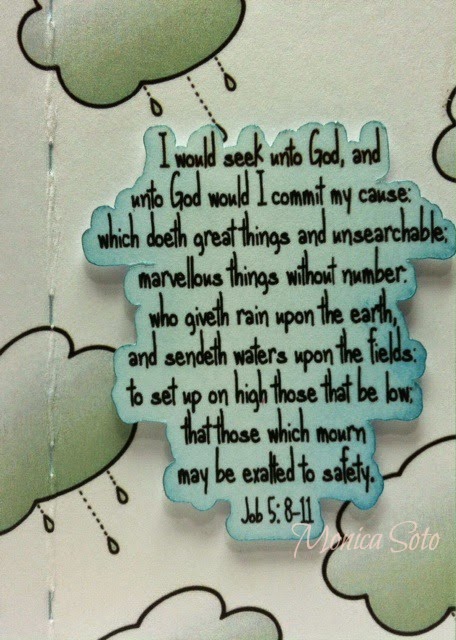 I would seek unto God, and
unto God would I commit my cause:
which doeth great things and unsearchable;
marvellous things without number:
who giveth rain upon the earth,
and sendeth waters upon the fields:
to set up on high those that be low;
that those which mourn
may be exalted to safety.
Job 5: 8-11
Monica Soto